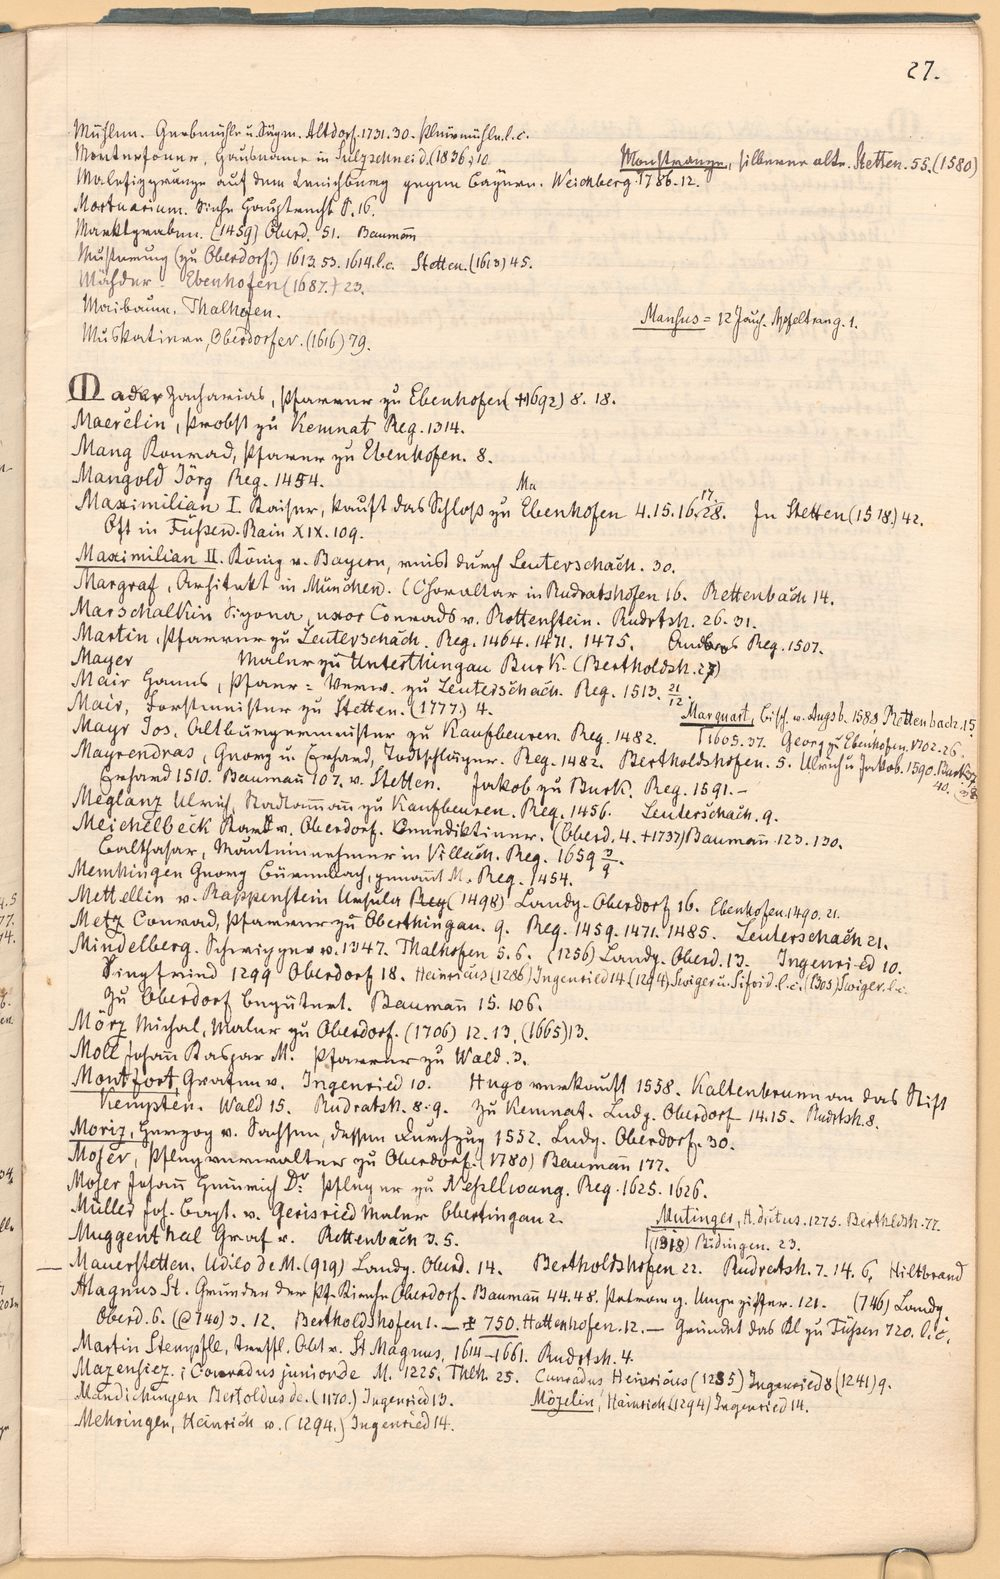 27.
Mühlen. Gerbmühle u. Sägm. Altdorf. 1731. 30. Pleivmühle. l. c.
Hausname in Sulzschneid. (1836.) 10
Monstranze, silberne alte. Stetten. 55. (1580)
auf dem gegen Bayern. Weichberg 1786. 12.
Mortuarium. Siehe Hauptrecht S. 16.
Marktgraben. (1459) Oberd. 51. Baumañ
Musterung (zu Oberdorf.) 1613. 53. 1614. l. c. Stetten. (1613) 45.
Mähder. Ebenhofen (1687.) 23.
Maibaum. Thalhofen.
Manhus = 12 Jauch. Apfeltrang. 1.
Muskatiere, Oberdorfer. (1616) 79.
Mader Zacharias, Pfarrer zu Ebenhofen (+1692) 8. 18.
Maerclin, Probst zu Kemnat Reg. 1314.
Mang Konrad, Pfarrer zu Ebenhofen. 8.
Mangold Jörg Reg. 1454.
Ma
Maximilian I. Kaiser, kauft das Schloß zu Ebenhofen 4. 15. 16. 17. 28. In Stetten (1518.) 42.
Oft in Füßen. Rain XIX. 109.
Maximilian II. König v. Bayern, reist durch Leuterschach. 30.
Margraf, Architekt in München. (Choraltar in Rudratshofen 16. Rettenbach 14.
Marschalkin uxor Conrads v. Rottenstein. Rudrtsh. 26. 31.
Martin, Pfarrer zu Leuterschach. Reg. 1464. 1471. 1475. Andreas Reg. 1507.
Mayer Maler zu Unterthingau Burk. (Bertholdsh. 27)
Mair Hanns, Pfarr = Verw. zu Leuterschach. Reg. 1513. 21/12.
Mair, Forstmeister zu Stetten. (1777.) 4.
Marquart, bisch. v. Augsb. 1580 Rettenbach. 15
Mayr Jos. Altbürgermeister zu Kaufbeuren. Reg. 1482. 1605. 37. Georg zu Ebenhofen. 1702. 26.
Mayrendras, Georg u. Erhard, Todtschläger. Reg. 1482. Bertholdshofen. 5. Ulrich u. Jakob. 1590. Burk
Erhard 1510. Baumañ 107. v. Stetten. Jakob zu Burk. Reg. 1591. –
40.
Meglanz Ulrich, Stadtamañ zu Kaufbeuren. Reg. 1456. Leuterschach. 9.
Meichelbeck Karl v. Oberdorf. Benediktiner. (Oberd. 4. +1737) Baumañ 123. 130.
Balthasar, Mauteinnehmer in Villach. Reg. 1659 3/9.
Memhingen Georg genañt M. Reg. 1454.
Mettellin v. Rappenstein Ursula Reg (1498) Landg. Oberdorf 16. Ebenhofen. 1490. 21.
Metz Conrad, Pfarrer zu Oberthingau. 9. Reg. 1459. 1471. 1485. Leuterschach 21.
Mindelberg. Schwigger v. 1347. Thalhofen 5. 6. (1256) Landg. Oberd. 13. Ingenried 10.
Singfried 1299 Oberdorf 18. Heinricus (1286) Ingenried 14 (1294) Swiger u. Sifrid l. c. (1303) Swiger. l. c.
zu Oberdorf begütert. Baumañ 15. 106.
Mörz Michal, Maler zu Oberdorf. (1706) 12. 13, (1665) 13.
Moll Johañ Kaspar M. Pfarrer zu Wald. 3.
Montfort, Grafen v. Ingenried 10. Hugo verkauft 1558. Kaltenbrunn an das Stift
Kempten. Wald 15. Rudratsh. 8. 9. zu Kemnat. Ludg. Oberdorf 14. 15. Rudrtsh. 8.
Moriz, Herzog v. Sachsen, dessen Durchzug 1552. Ludg. Oberdorf. 30.
Moser, Pflegverwalter zu Oberdorf. (1780) Baumañ 177.
Moser Johañ Heinrich Dr. Pfleger zu Neßellwang. Reg. 1625. 1626.
Müller Joh. Bapt. v. Gerisried Maler Obertingau 2.
Mutinger, H. dictus. 1275. Berthldsh. 77.
Muggenthal Graf v. Rettenbach 3. 5.
(1318) Rüdingen. 23.
— Mauerstetten. Udilo de M. (919) Landg. Oberd. 14. Bertholdshofen 22. Rudrtsh. 7. 14. 6, Hiltbrand
Magnus St. Gründer der Pf. Kirche Oberdorf. Baumañ 44. 48. Patron g. Ungeziffer. 121. (746) Landg.
Oberd. 6. (@ 740) 3. 12. Bertholdshofen 1. — + 750. Hattenhofen. 12. — Gründet das Kl zu Füssen 720. l. c.
Martin Stempfle, treffl. Abt v. St Magnus, 1614–1661. Rudrtsh. 4.
Mazensiez. ; Conradus junior de M. 1225. Thlh. 25. Cunradus Heinricus (1235) Ingenried 8 (1241) 9.
Mandichingen Bertoldus de. (1170.) Ingenried 13.
Mözelin, Heinrich (1294) Ingenried 14.
Mehringen, Heinrich v. (1294.) Ingenried 14.